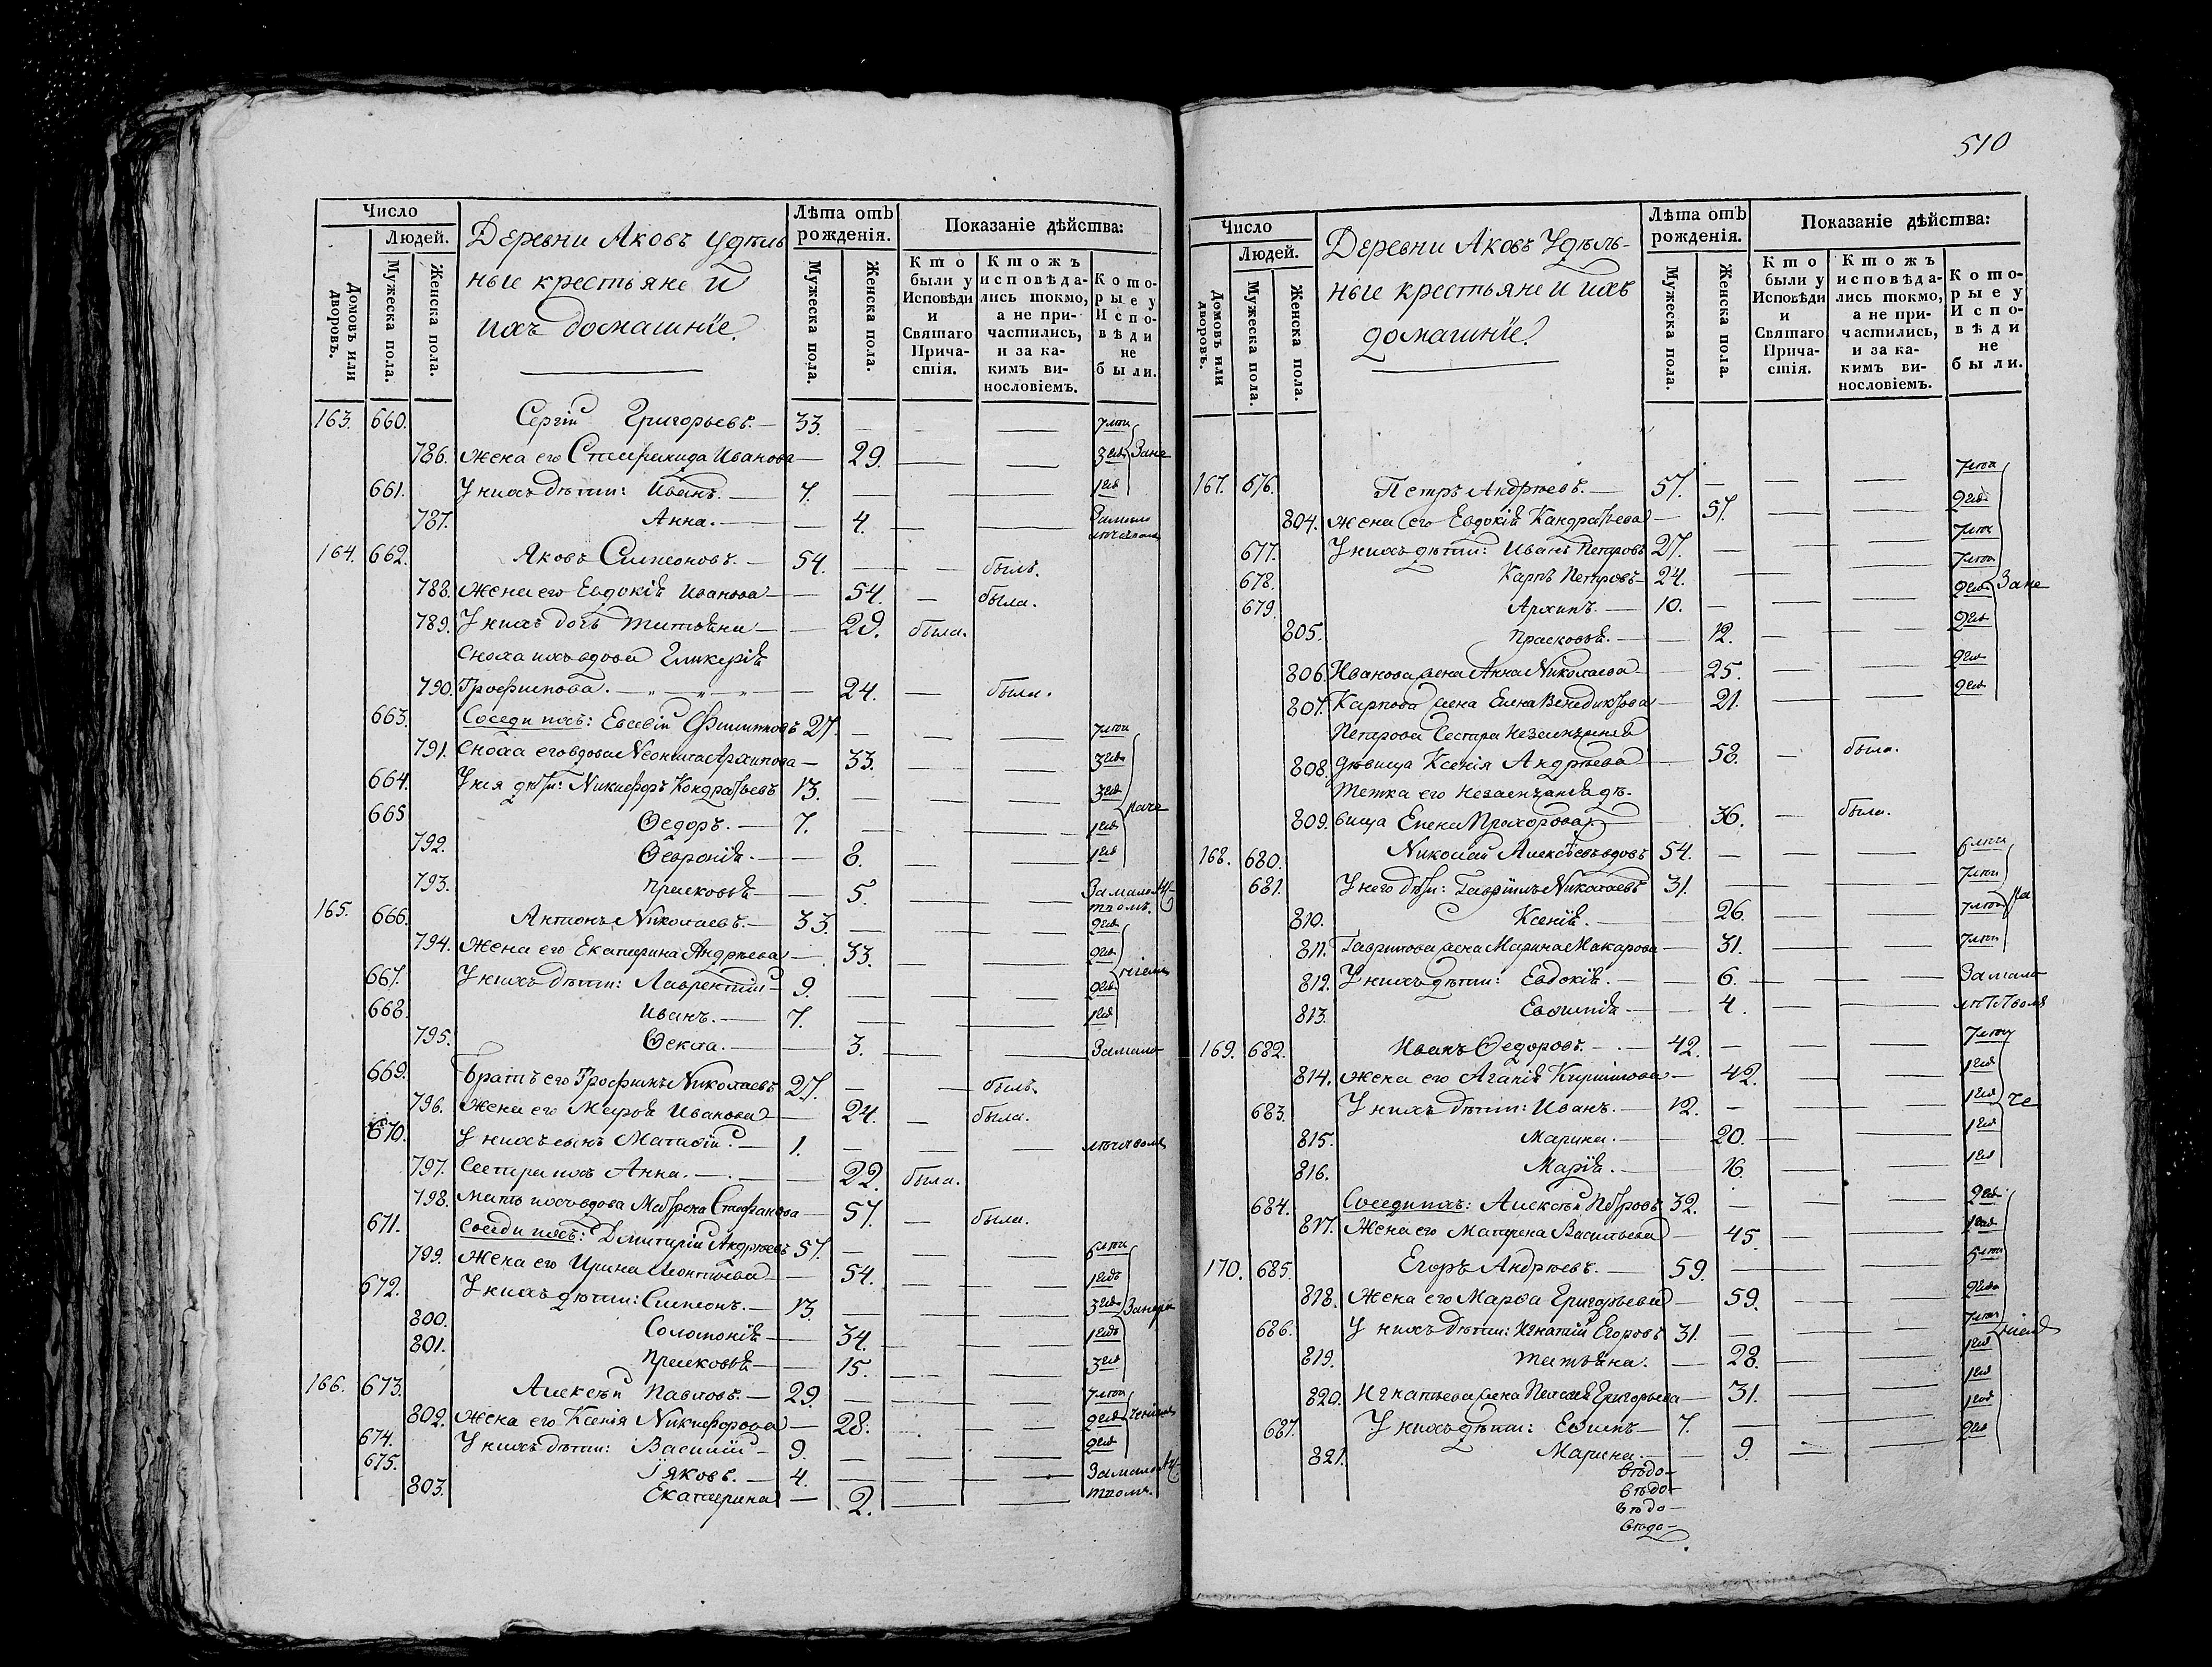 Число
Людей.
Домовъ или дворовъ.
Мужеска пола.
Женска пола.
Деревни Аковъ Удѣль
ные крестьяне и
ихъ домашнїе.
Лѣта отъ рожденія.
Мужеска пола.
Женска пола.
Показаніе дѣйства:
Кто были у Исповѣди и Святаго Прича-стія.
Ктожъ исповѣда-лись токмо, а не при-частились, и за ка-кимъ ви-нословіемъ.
Кото-рые у Испо-вѣди не были.
163. 660. Сергїй Григорьевъ. — 33. — — — 7 лѣтъ
786. Жена его Стефанида Иванова — 29. — — 3 год Зане
661. У нихъ дѣти: Иванъ. — 7. — — 1 год
787. Анна. — — 4. — — За мало
лѣтством
164. 662. Яковъ Симеоновъ. — 54. — — былъ.
788. Жена его Евдокія Иванова — — 54. — была.
789. У нихъ дочь Татьяна — — 29. была.
Сноха ихъ вдова Гликерія
790. Трофимова. — — 24. — была.
663. Соседи ихъ: Евсевїй Филипповъ 27. — — — 7 лѣтъ
791. Сноха его вдова Неонила Архипова — 33. — — 3 года
664. У нея дѣти: Никифоръ Кондратьевъ 13. — — — 3 год
665 Ѳедоръ. — 7. — — — 1 год
792. Ѳеврония. — — 8. — — 1 год
793. Прасковья — — 5. — — За мало лѣ-
тномъ.
165. 666. Антонъ Николаевъ. — 33. — — — 2 год
794. Жена его Екатерина Андрѣева — 33. — — 2 год
667. У нихъ дѣти: Лаврентїй — 9. — — — 2 год
668. Иванъ. — 7. — — — 1 год
795. Ѳекла. — — 3. — — За мало
669. Братъ его Трофимъ Николаевъ 27. — — былъ.
796. Жена его Марѳа Иванова — — 24. — была.
670. У нихъ сынъ Матвѣй. — 1. — — — лѣтством
797. Сестра ихъ Анна. — — 22. была.
798. Мать ихъ вдова Матрена Стефанова — 57. — была.
671. Соседи ихъ: Димитрїй Андрѣевъ 57. — — — 6 лѣтъ
799. Жена его Ирина Леонтьева — — 54. — — 1 годъ
672. У нихъ дѣти: Симеонъ. — 13. — — — 3 года
800. Соломонія — — 34. — — 1 годъ
801. Прасковья — — 15. — — 3 год
166. 673. Алексѣй Павловъ. — 29. — — — 7 лѣтъ
802. Жена его Ксенія Никифорова — 28. — — 2 год
674. У нихъ дѣти: Василїй — 9. — — — 2 год
675. Їяковъ. — 4. — — — За мало лѣ-
803. Екатерина — 2. — — тномъ.
510
Число
Людей.
Домовъ или дворовъ.
Мужеска пола.
Женска пола.
Деревни Аковъ Удѣль-
ные крестьяне и ихъ
домашнїе.
Лѣта отъ рожденія.
Мужеска пола.
Женска пола.
Показаніе дѣйства:
Кто были у Исповѣди и Святаго Прича-стія.
Ктожъ исповѣда-лись токмо, а не при-частились, и за ка-кимъ ви-нословіемъ.
Кото-рые у Испо-вѣди не были.
167. 676. Петръ Андрѣевъ. — 57. — — — 7 лѣтъ
804. Жена его Евдокія Кандратьева — 57. — — 2 год
677. У нихъ дѣти: Иванъ Петровъ 27. — — — 7 лѣтъ
678. Карпъ Петровъ — 24. — — — 7 лѣтъ
679. Архипъ. — 10. — — — 2 год Зане
805. Прасковья. — — 12. — — 2 год
806. Иванова жена Анна Николаева — 25. — — 2 год
807. Карпова жена Елена Венедиктова 21. — — 2 год
Петрова Сестра незамужняя
808. дѣвица Ксенія Андрѣева — 58. — была.
Тетка его незамужняя дѣ-
809. вица Елена Прохорова — 36. — была.
168. 680. Николай Алексѣевъ вдовъ 54. — — — 6 лѣтъ
681. У него дѣти: Гаврїилъ Николаевъ 31. — — — 7 лѣтъ
810. Ксенїя. — — 26. — — 7 лѣтъ
811. Гаврилова жена Марина Макарова — 31. — — 7 лѣтъ
812. У нихъ дѣти: Евдокїя. — — 6. — — За мало
813. Евѳимїя — — 4. — — лѣтством
169. 682. Иванъ Ѳедоровъ. — 42. — — — 7 лѣтъ
814. Жена его Агапія Кирилова — 42. — — 1 год
683. У нихъ дѣти: Иванъ. — 12. — — — 1 год
815. Марина. — — 20. — — 1 год
816. Марїя. — — 16. — — 1 год
684. Соседи ихъ: Алексѣй Петровъ 32. — — — 2 год
817. Жена его Матрена Васильева — 45. — — 1 год
170. 685. Егоръ Андрѣевъ. — 59. — — — 5 лѣтъ
818. Жена его Марѳа Григорьева — 59. — — 2 года
686. У нихъ дѣти: Игнатїй Егоровъ 31. — — — 7 лѣтъ
819. Татьяна. — 28. — — 1 год
820. Игнатьева жена Пелагея Григорьева — 31. — — 1 год
687. У нихъ дѣти: Еѳимъ — 7. — — — 1 год
821. Марина. — 9. — — 2 год
вѣдо-
вѣдо-
вѣдо-
вѣдо-